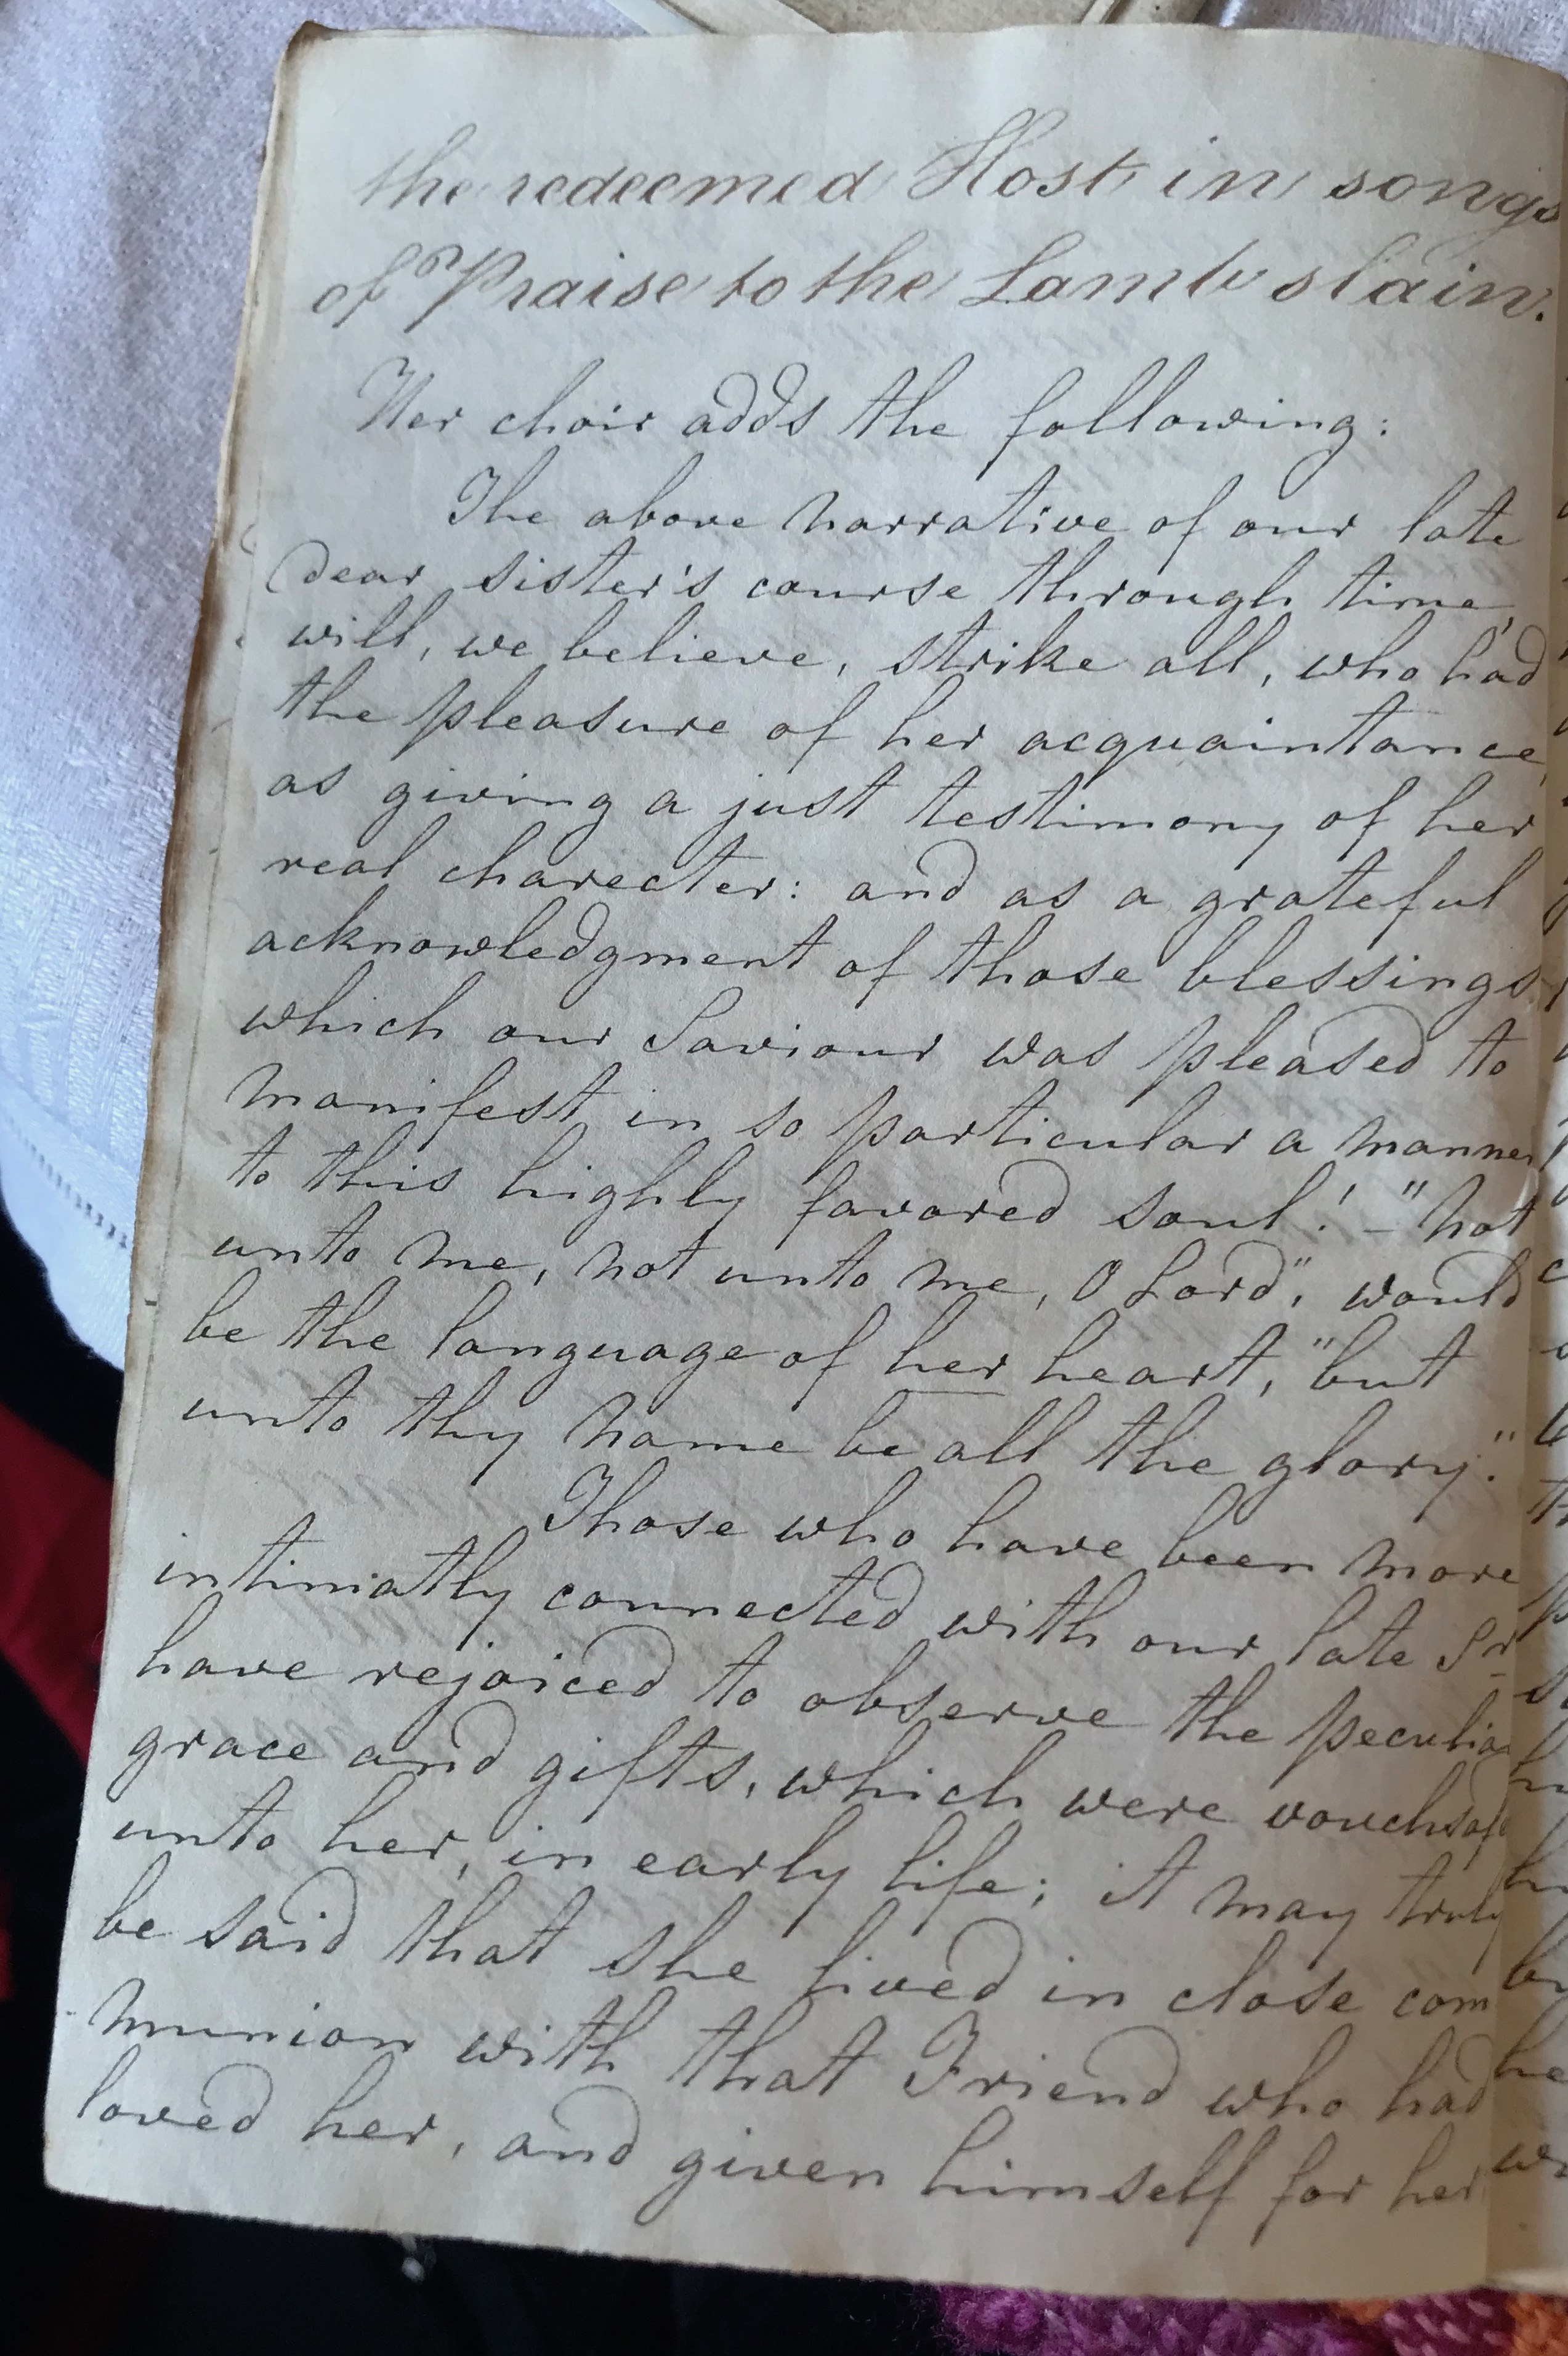 the redeemed Host in songs
of Praise to the Lamb slain.
Her choir adds the following:
The above narrative of our late
dear sister's course through time,
will, we believe, strike all, who had
the pleasure of her acquaintance,
as giving a just testimony of her
real charecter: and as a grateful
acknowledgment of those blessings,
which our Saviour was pleased to
manifest in so particular a manner
to this highly favored soul! - "not
unto me, not unto me, O Lord", would
be the language of her heart, "but
unto thy name be all the glory."
Those who have been more
intimatly connected with our late Sr
have rejoiced to observe the peculia
grace and gifts, which were vouchsaf
unto her, in early life; it may truly
be said that she lived in close com
munion with that Friend who had
loved her, and given himself for her